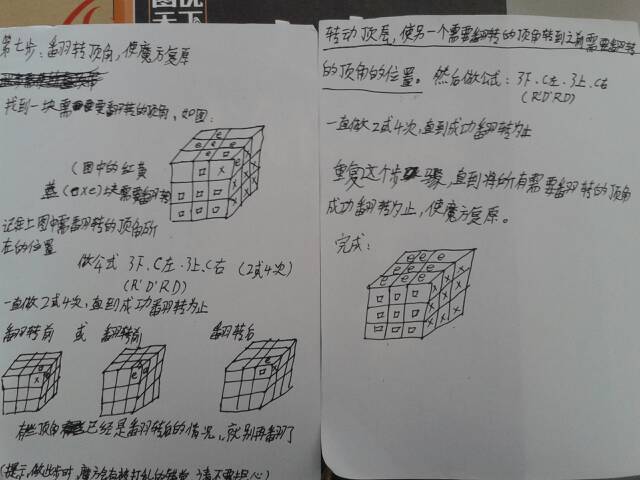 第七步：翻转顶角，使魔方复原
找到一块需要翻转的顶角，如图：
（图中的红黄
蓝(ⓔxe)块需要翻转
记住上图中需翻转的顶角所
在的位置
做公式 3下、C左、3上、C右 （2或4次）
(R'D'RD)
一直做2或4次，直到成功翻转为止
翻转前 或 翻转前 翻转后
有些顶角已经是翻转后的情况，就别再翻了
转动顶层，使另一个需要翻转的顶角转到之前需要翻转
的顶角的位置。然后做公式：3下、C左、3上、C右
(R'D'RD)
一直做2或4次，直到成功翻转为止
重复这个步骤，直到将所有需要翻转的顶角
成功翻转为止，使魔方复原。
完成：